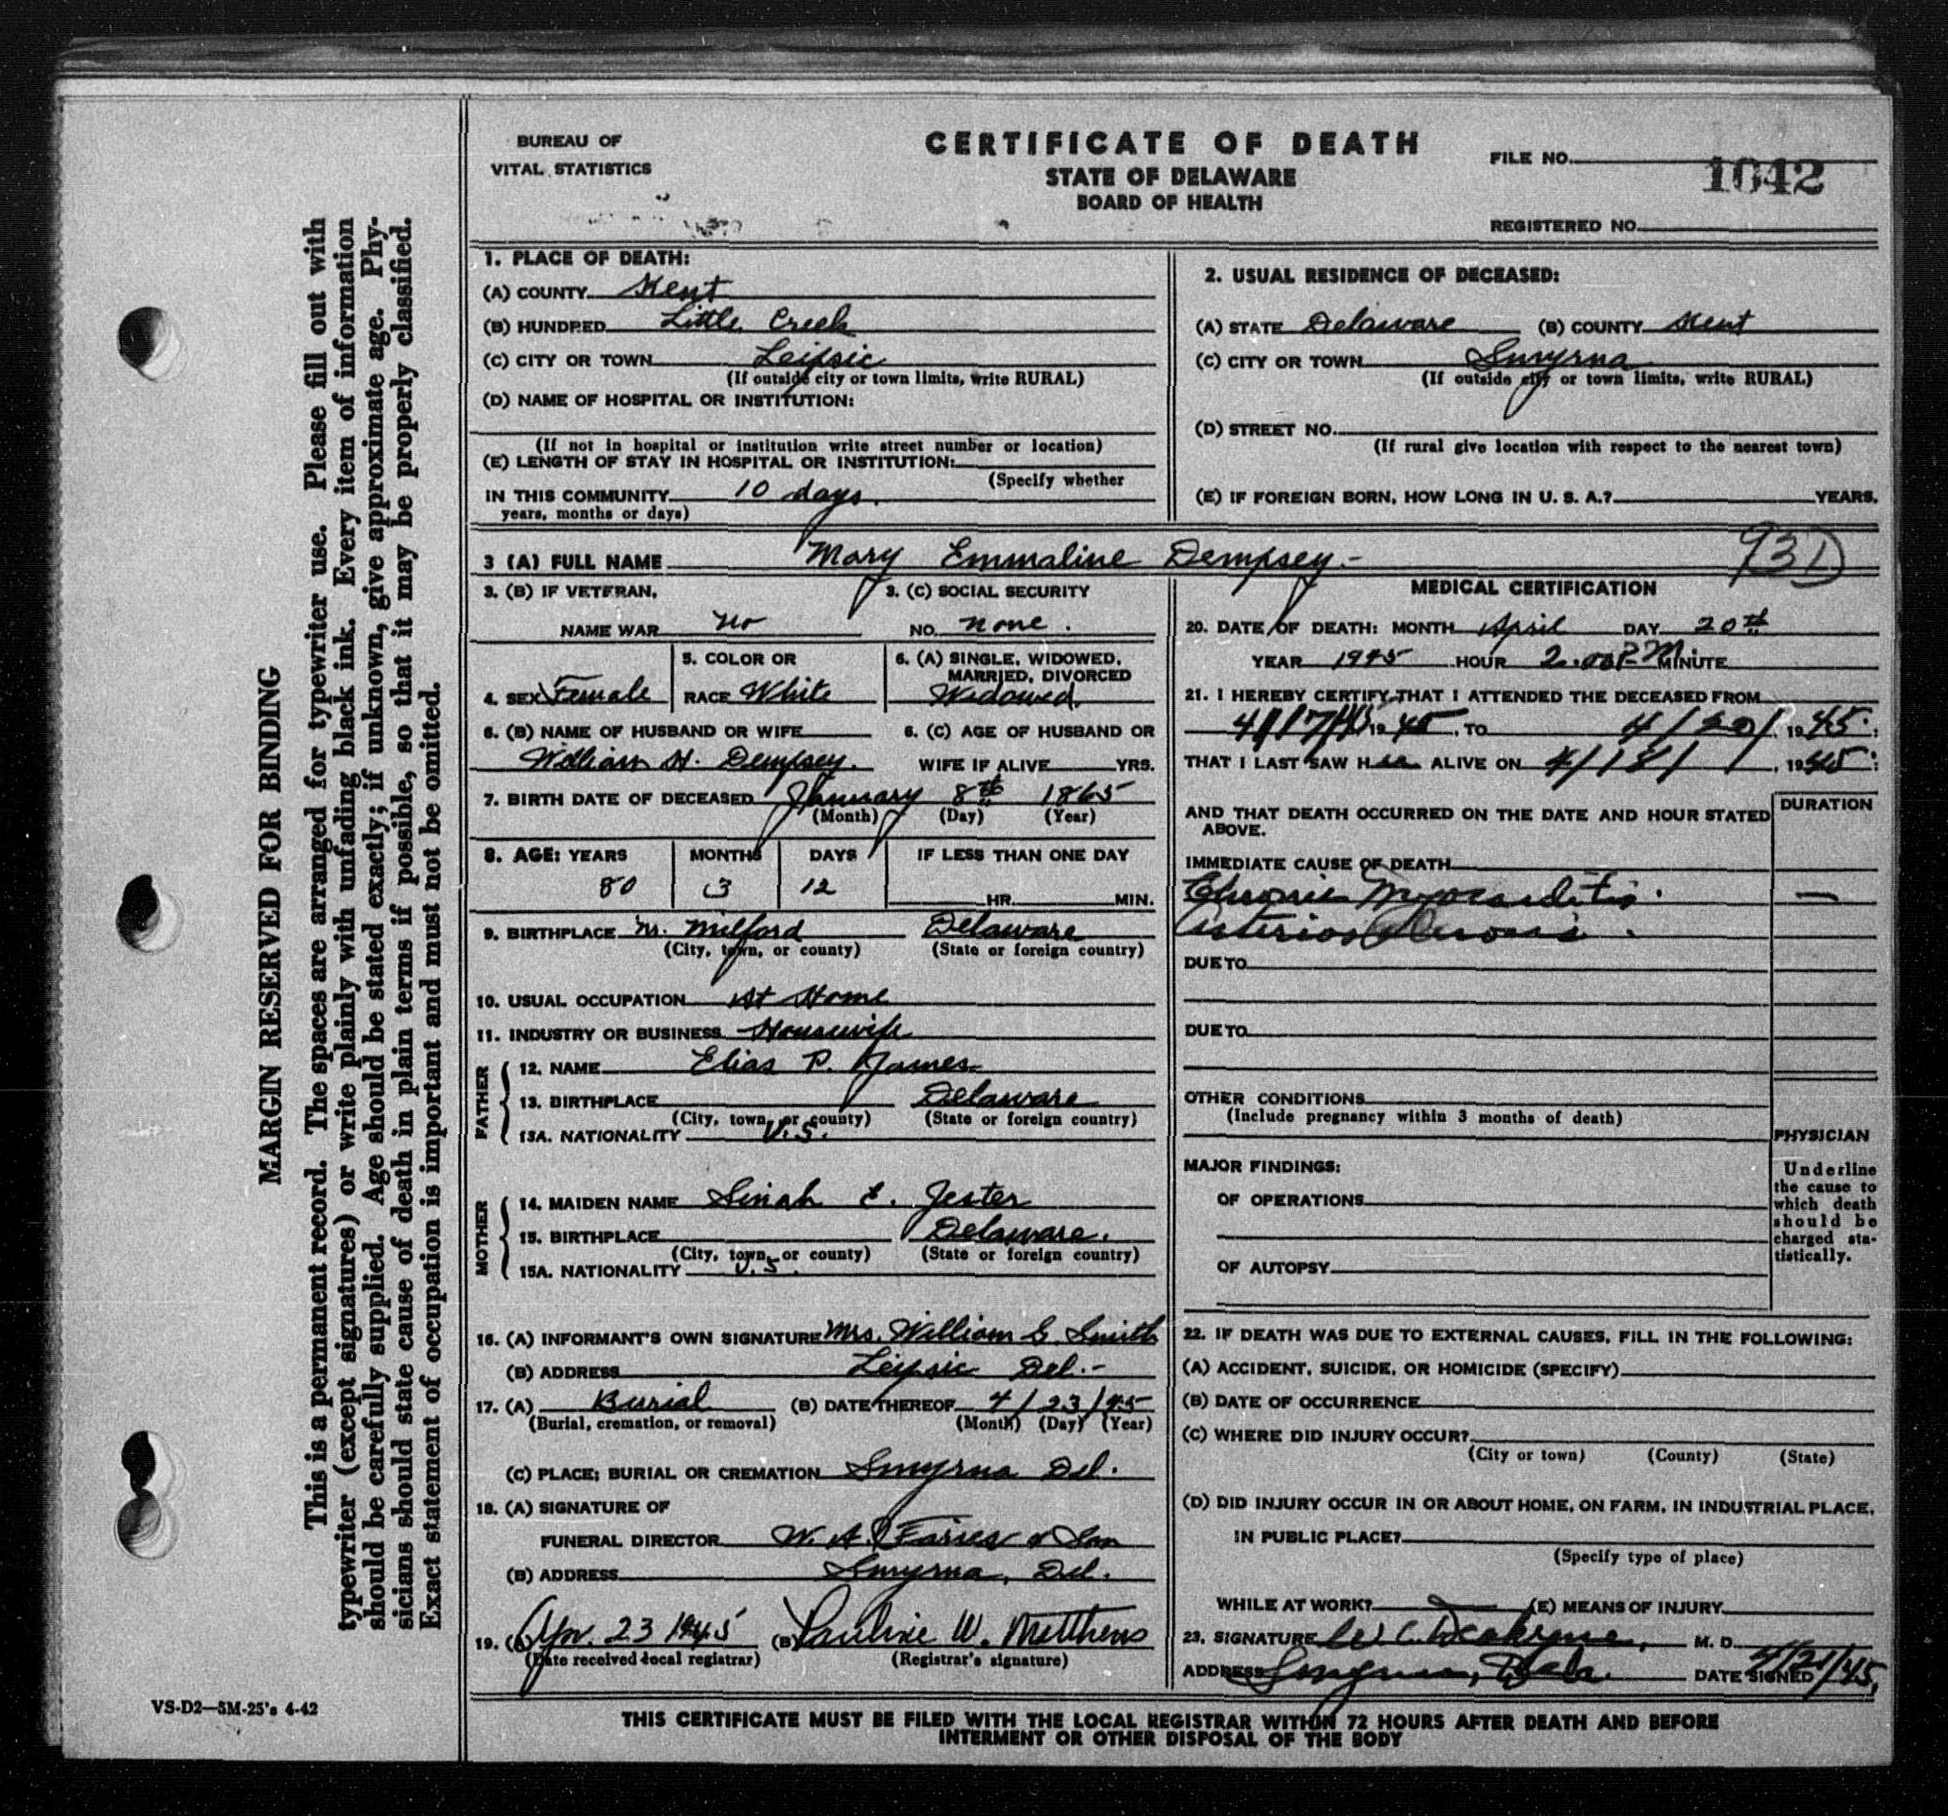 BUREAU OF
VITAL STATISTICS
CERTIFICATE OF DEATH
STATE OF DELAWARE
BOARD OF HEALTH
FILE NO. 1042
REGISTERED NO.
MARGIN RESERVED FOR BINDING
This is a permanent record. The spaces are arranged for typewriter use. Please fill out with
typewriter (except signatures) or write plainly with unfading black ink. Every item of information
should be carefully supplied. Age should be stated exactly; if unknown, give approximate age. Phy-
sicians should state cause of death in plain terms if possible, so that it may be properly classified.
Exact statement of occupation is important and must not be omitted.
VS-D2—5M-25's 4-42
1. PLACE OF DEATH:
(A) COUNTY Kent
(B) HUNDRED Little Creek
(C) CITY OR TOWN Leipsic
(If outside city or town limits, write RURAL)
(D) NAME OF HOSPITAL OR INSTITUTION:
(If not in hospital or institution write street number or location)
(E) LENGTH OF STAY IN HOSPITAL OR INSTITUTION:
(Specify whether
IN THIS COMMUNITY 10 days.
years, months or days)
2. USUAL RESIDENCE OF DECEASED:
(A) STATE Delaware (B) COUNTY Kent
(C) CITY OR TOWN Smyrna
(If outside city or town limits, write RURAL)
(D) STREET NO.
(If rural give location with respect to the nearest town)
(E) IF FOREIGN BORN, HOW LONG IN U. S. A.? YEARS.
3 (A) FULL NAME Mary Emmaline Dempsey.- 93D
3. (B) IF VETERAN, 3. (C) SOCIAL SECURITY
NAME WAR no NO. none.
4. SEX Female
5. COLOR OR
RACE White
6. (A) SINGLE, WIDOWED,
MARRIED, DIVORCED
Widowed.
6. (B) NAME OF HUSBAND OR WIFE 6. (C) AGE OF HUSBAND OR
William H. Dempsey. WIFE IF ALIVE YRS.
7. BIRTH DATE OF DECEASED January 8th 1865
(Month) (Day) (Year)
8. AGE: YEARS MONTHS DAYS IF LESS THAN ONE DAY
80 3 12 HR. MIN.
9. BIRTHPLACE nr. Milford Delaware
(City, town, or county) (State or foreign country)
10. USUAL OCCUPATION At Home
11. INDUSTRY OR BUSINESS Housewife
FATHER
12. NAME Elias P. James
13. BIRTHPLACE Delaware
(City, town, or county) (State or foreign country)
13A. NATIONALITY U.S.
MOTHER
14. MAIDEN NAME Sinah E. Jester
15. BIRTHPLACE Delaware.
(City, town, or county) (State or foreign country)
15A. NATIONALITY U.S.
16. (A) INFORMANT'S OWN SIGNATURE Mrs. William S. Smith
(B) ADDRESS Leipsic Del.-
17. (A) Burial (B) DATE THEREOF 4/23/45
(Burial, cremation, or removal) (Month) (Day) (Year)
(C) PLACE; BURIAL OR CREMATION Smyrna Del.
18. (A) SIGNATURE OF
FUNERAL DIRECTOR W. A. Faries & Son
(B) ADDRESS Smyrna, Del.
19. (A) Apr. 23 1945 (B) Pauline W. Matthews
(Date received local registrar) (Registrar's signature)
MEDICAL CERTIFICATION
20. DATE OF DEATH: MONTH April DAY 20th
YEAR 1945 HOUR 2.00 P.M. MINUTE
21. I HEREBY CERTIFY THAT I ATTENDED THE DECEASED FROM
4/17/ 1945, TO 4/20/, 1945;
THAT I LAST SAW HER ALIVE ON 4/18/, 1945;
AND THAT DEATH OCCURRED ON THE DATE AND HOUR STATED
ABOVE.
DURATION
IMMEDIATE CAUSE OF DEATH
Chronic Myocarditis. —
Arteriosclerosis.
DUE TO
DUE TO
OTHER CONDITIONS
(Include pregnancy within 3 months of death)
MAJOR FINDINGS:
OF OPERATIONS
OF AUTOPSY
PHYSICIAN
Underline
the cause to
which death
should be
charged sta-
tistically.
22. IF DEATH WAS DUE TO EXTERNAL CAUSES, FILL IN THE FOLLOWING:
(A) ACCIDENT, SUICIDE, OR HOMICIDE (SPECIFY)
(B) DATE OF OCCURRENCE
(C) WHERE DID INJURY OCCUR?
(City or town) (County) (State)
(D) DID INJURY OCCUR IN OR ABOUT HOME, ON FARM, IN INDUSTRIAL PLACE,
IN PUBLIC PLACE?
(Specify type of place)
WHILE AT WORK? (E) MEANS OF INJURY
23. SIGNATURE W. C. M. D.
ADDRESS Smyrna, Dela. DATE SIGNED 4/21/45,
THIS CERTIFICATE MUST BE FILED WITH THE LOCAL REGISTRAR WITHIN 72 HOURS AFTER DEATH AND BEFORE
INTERMENT OR OTHER DISPOSAL OF THE BODY